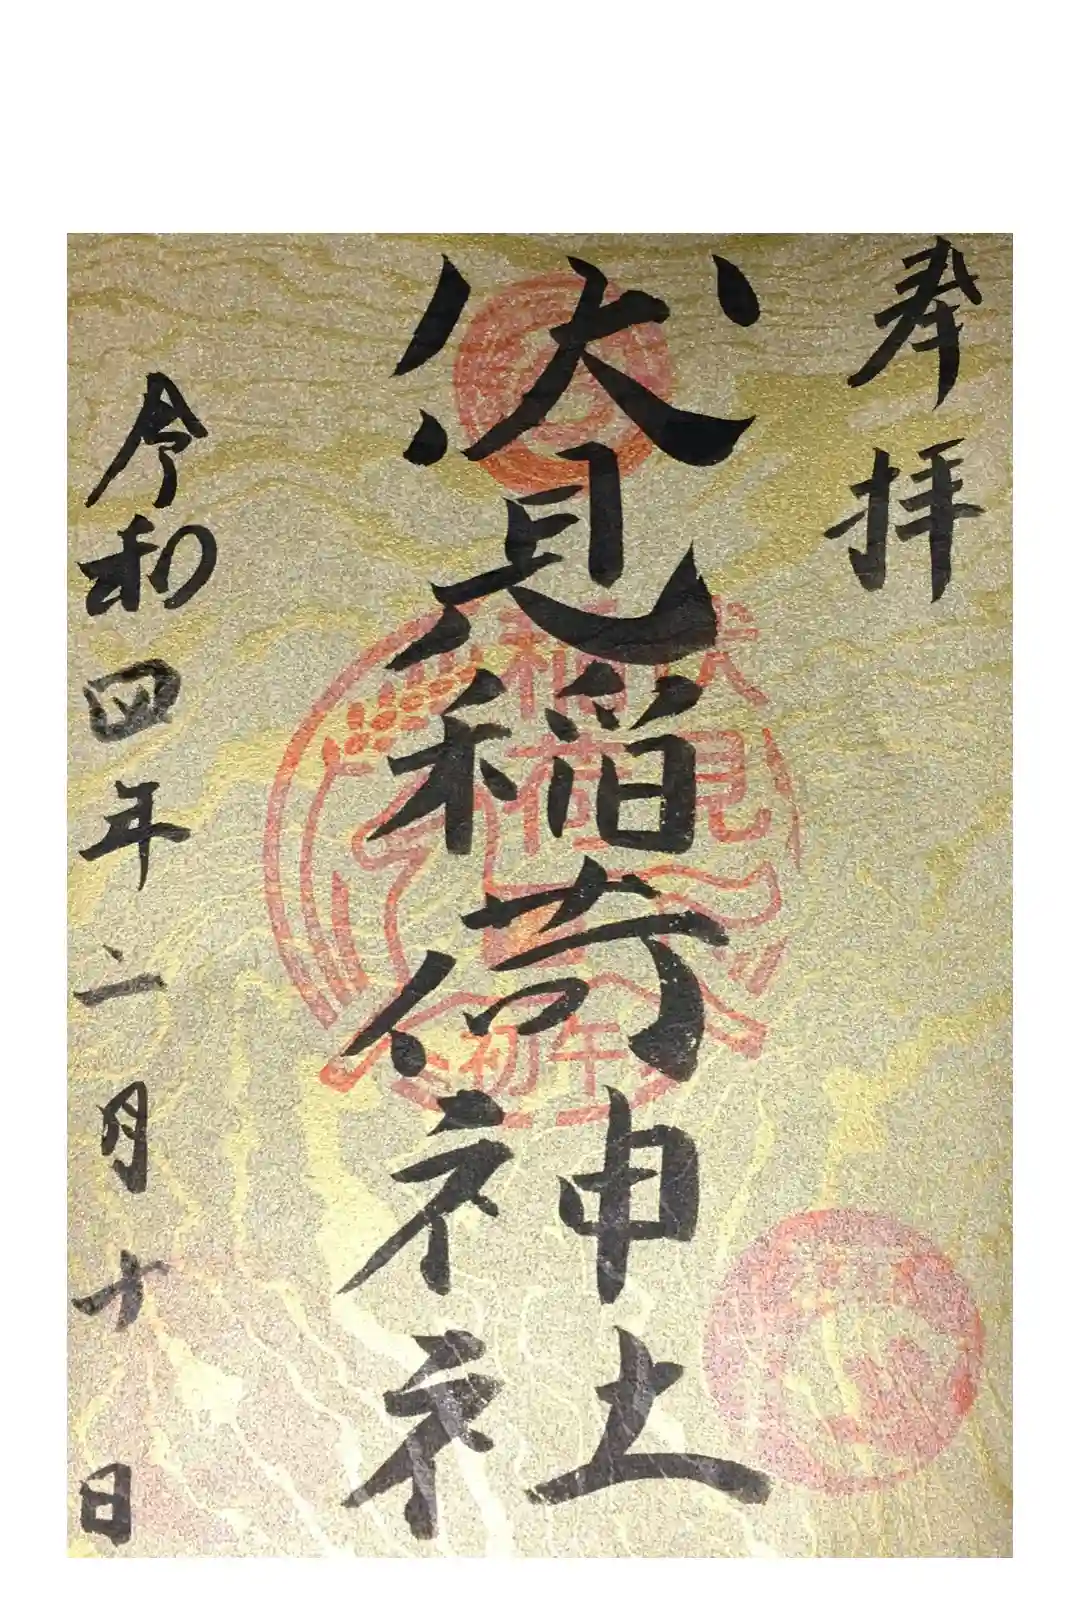 奉拝
伏見稲荷神社
伏見
稲荷
初午
令和四年二月十日